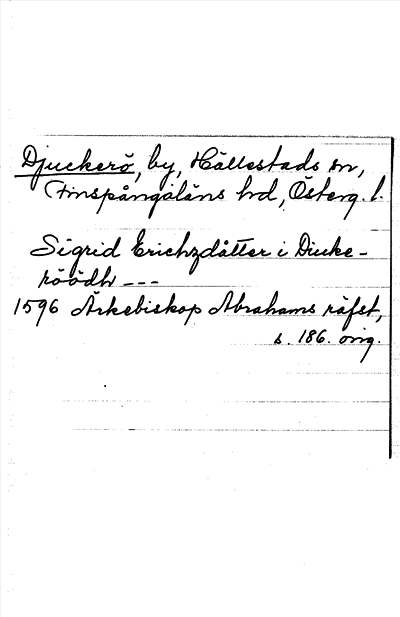 Djuckerö, by, Hällestads sn,
Finspångaläns hd, Österg. l.
Sigrid Erichzdåtter i Diuke-
röödh ---
1596 Ärkebiskop Abrahams räfst,
s. 186. orig.